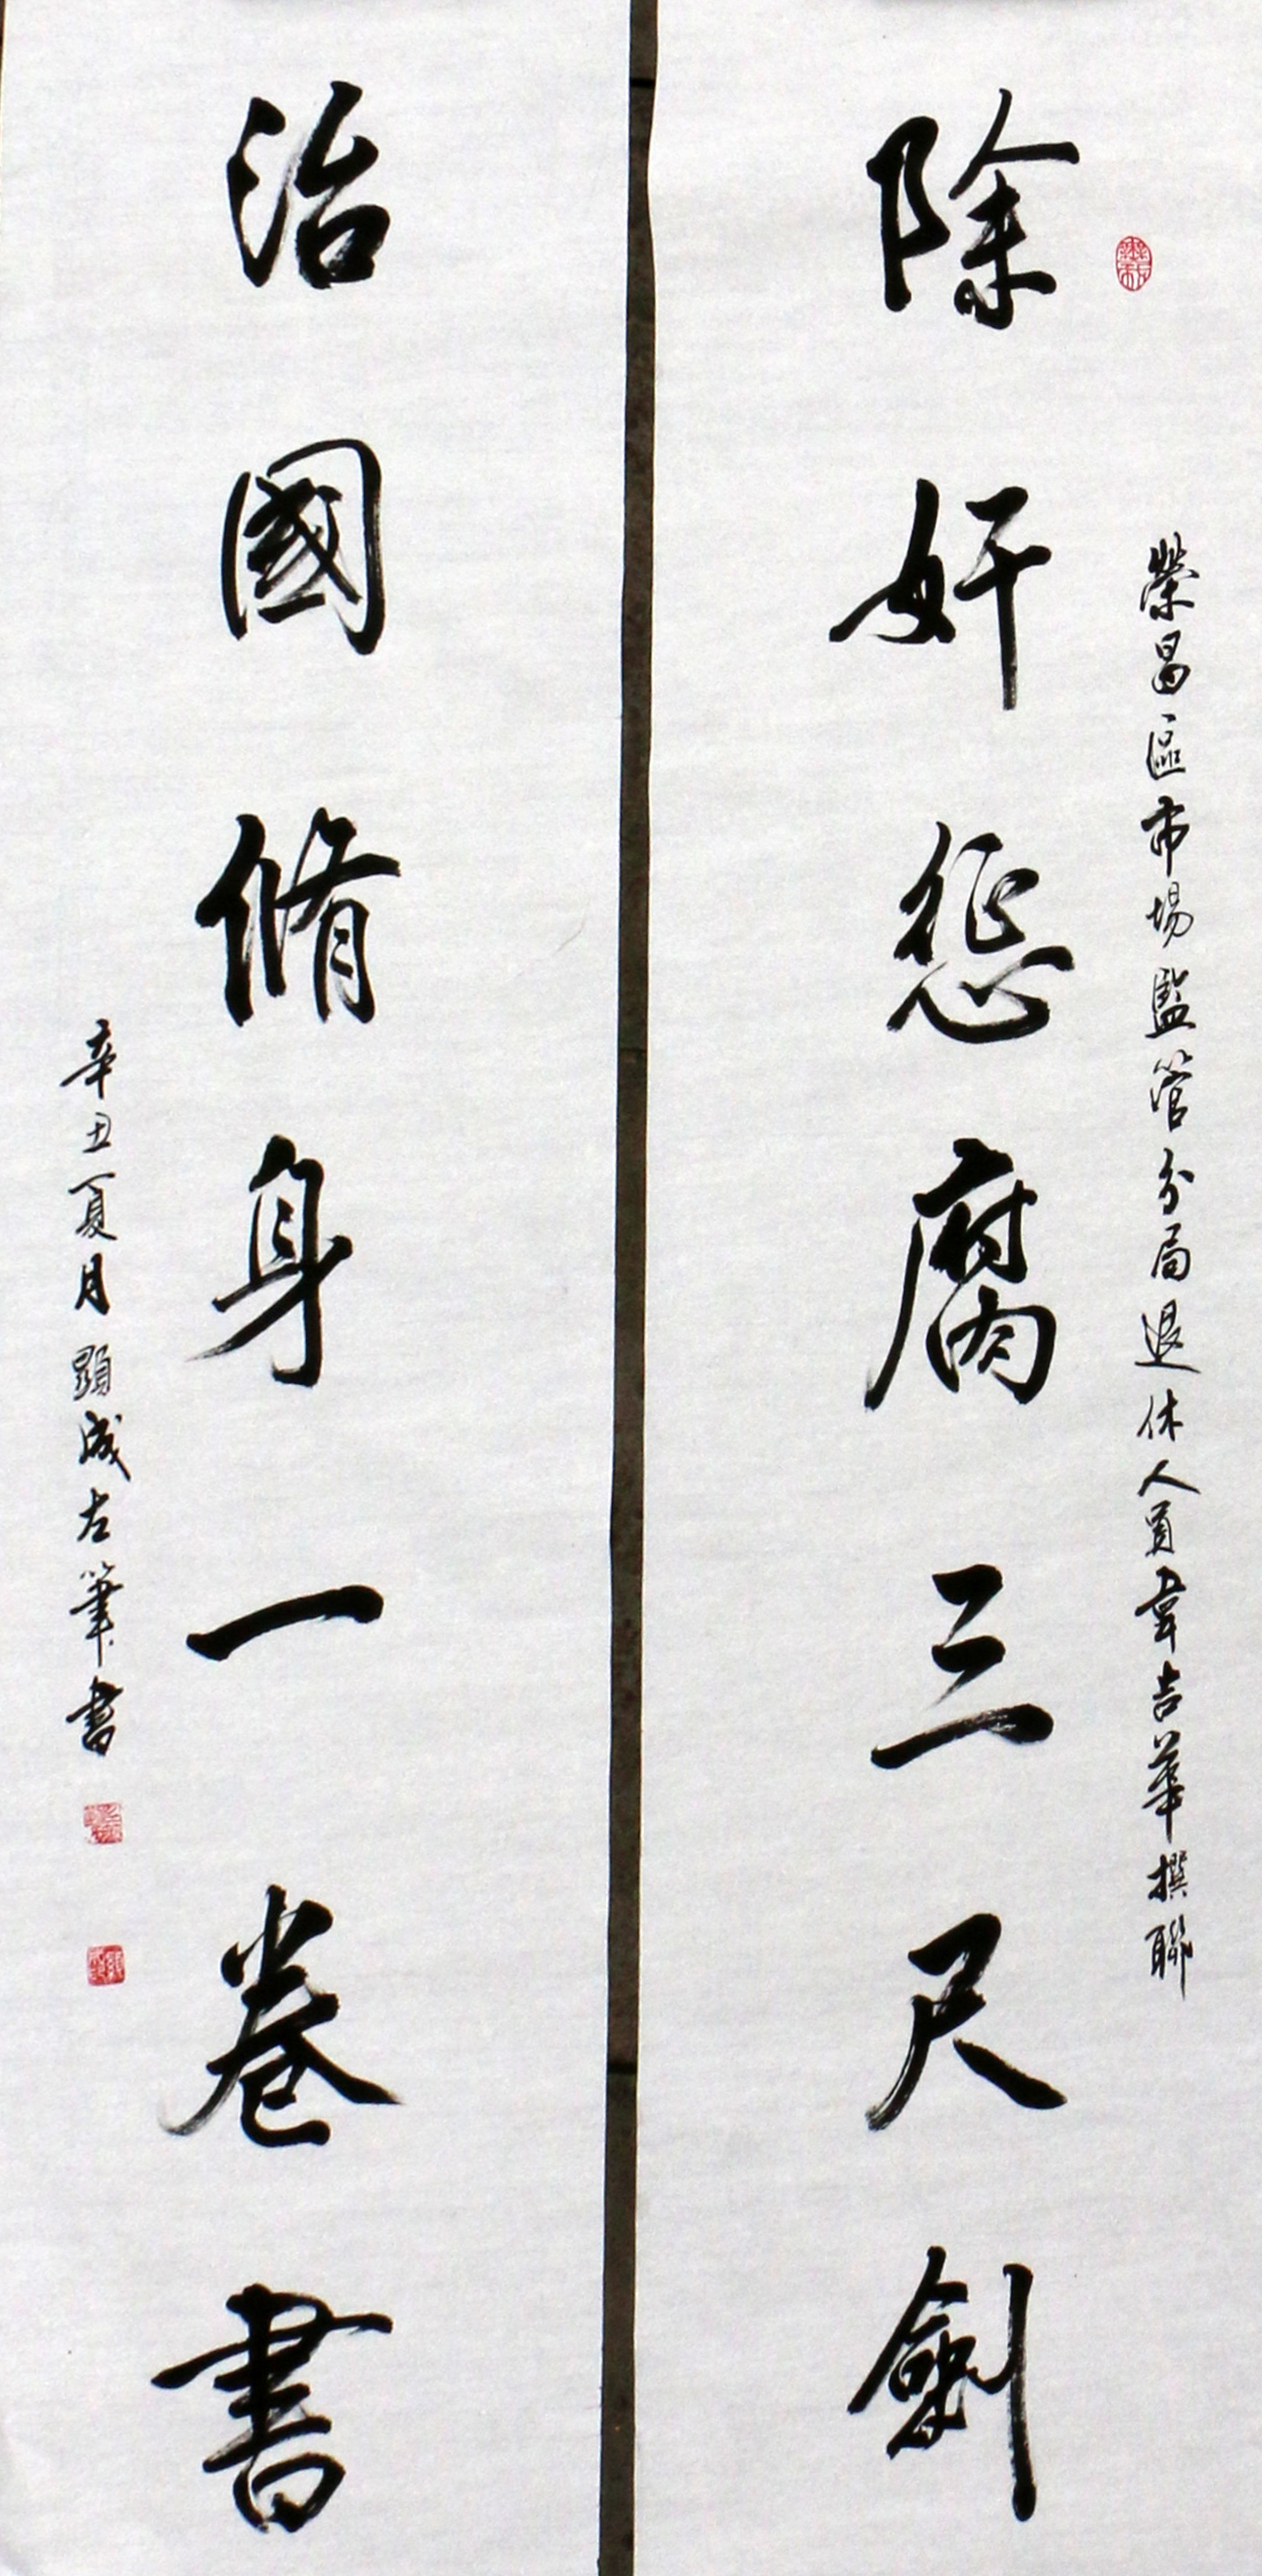 榮昌區市場監管分局退休人員韋吉華撰聯
除奸惩腐三尺劍
治國脩身一卷書
辛丑夏月顕成左筆書